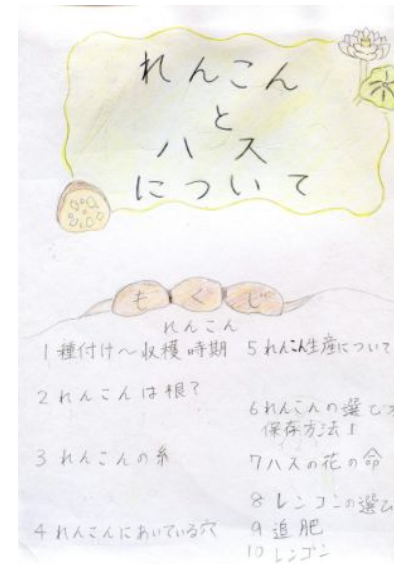 れんこん
と
ハス
について
もくじ
れんこん
1 種付け～収穫時期
2 れんこんは根?
3 れんこんの糸
4 れんこんにあいている穴
5 れんこん生産について
6 れんこんの選び
保存方法
7 ハスの花の命
8 レンコンの選び
9 追肥
10 レンゴン